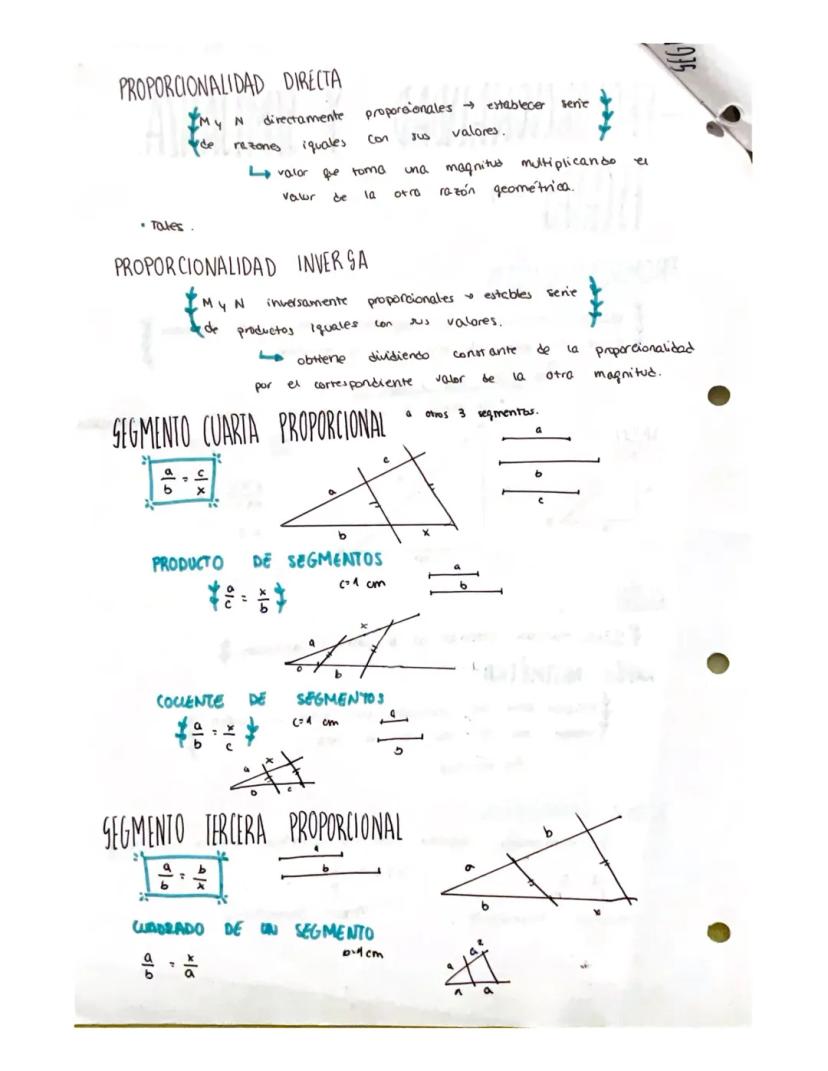 PROPORCIONALIDAD DIRECTA
M y N directamente proporcionales → establecer serie
de razones iguales con sus valores.
↳ valor que toma una magnitud multiplicando el
valor de la otra razón geométrica.
• Tales.
PROPORCIONALIDAD INVERSA
M y N inversamente proporcionales → estables serie
de productos iguales con sus valores.
↳ obtiene dividiendo constante de la proporcionalidad
por el correspondiente valor de la otra magnitud.
SEGMENTO CUARTA PROPORCIONAL a otros 3 segmentos.
a/b = c/x
a c b x
a
b
c
PRODUCTO DE SEGMENTOS
a/c = x/b
c=1 cm
a
b
a x b
COCIENTE DE SEGMENTOS
a/b = x/c
c=1 cm
a
b
a x b c
SEGMENTO TERCERA PROPORCIONAL
a/b = b/x
a
b
a b b x
CUADRADO DE UN SEGMENTO
a/b = x/a
b=1cm
a a² 1 a